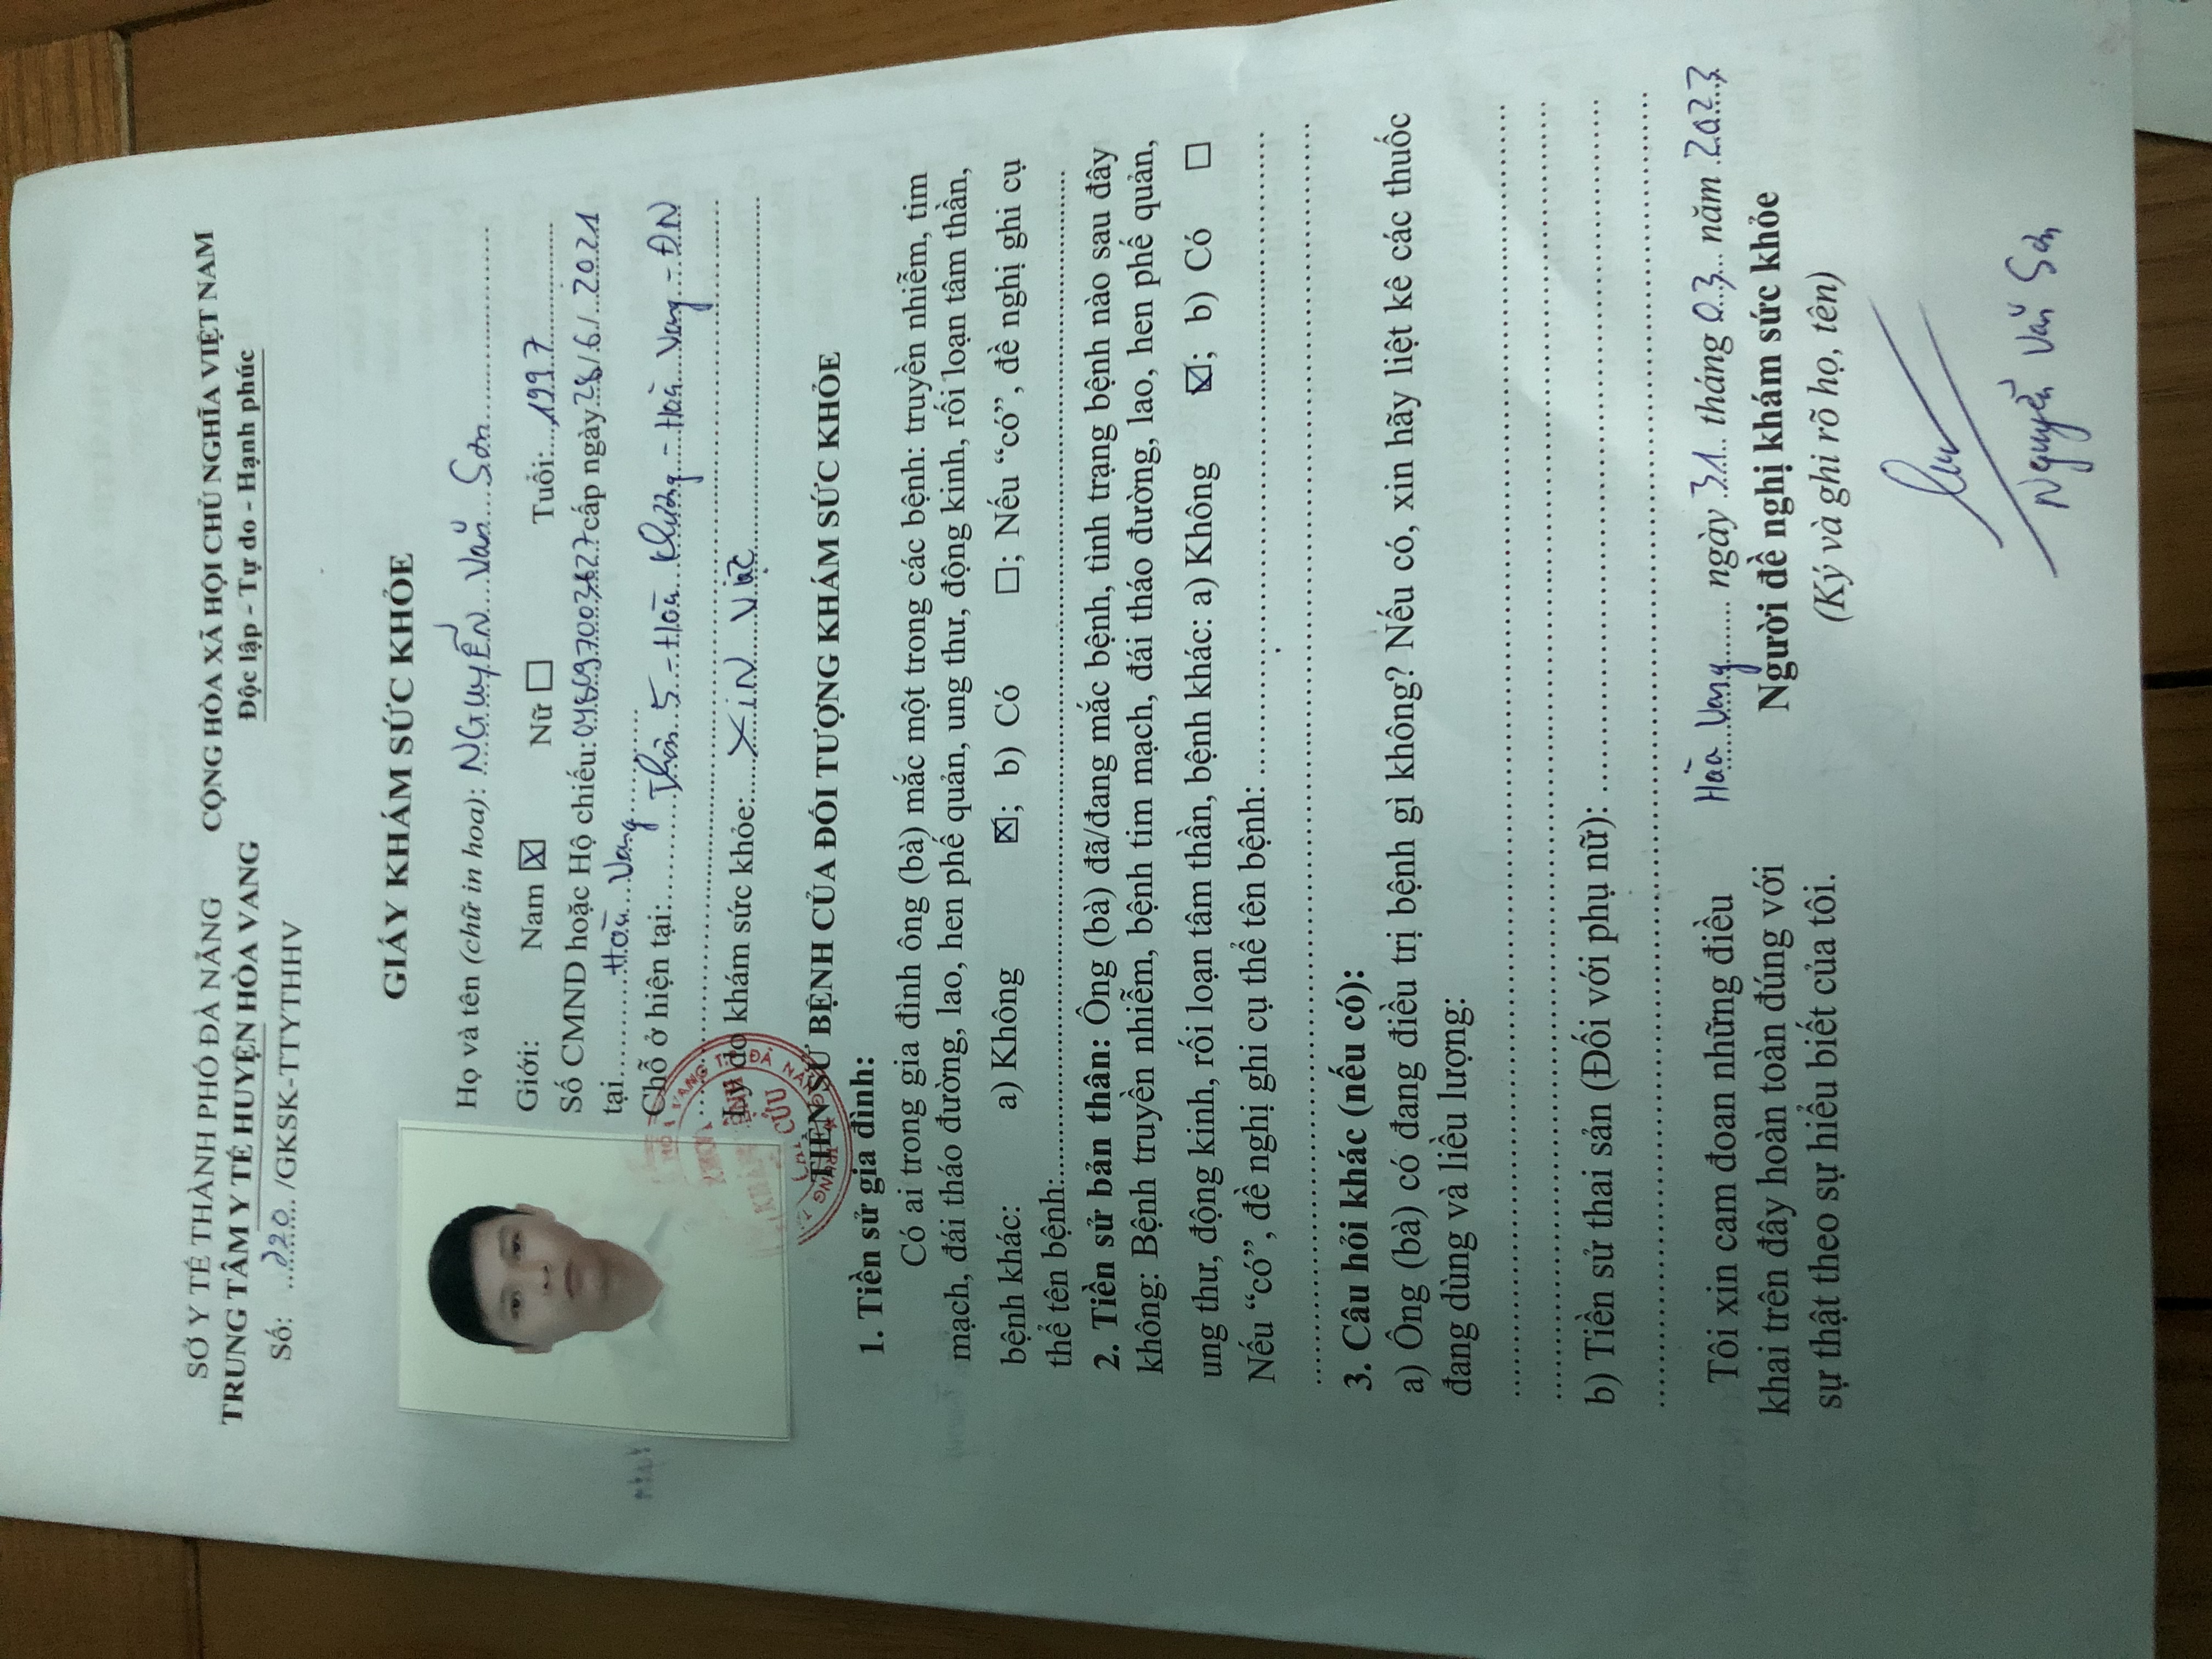 SỞ Y TẾ THÀNH PHỐ ĐÀ NẴNG
TRUNG TÂM Y TẾ HUYỆN HÒA VANG
Số: ...020..../GKSK-TTYTHHV
CỘNG HÒA XÃ HỘI CHỦ NGHĨA VIỆT NAM
Độc lập - Tự do - Hạnh phúc
GIẤY KHÁM SỨC KHỎE
Họ và tên (chữ in hoa): NGUYỄN Văn Sơn
Giới: Nam ☒ Nữ ☐ Tuổi: 1997
Số CMND hoặc Hộ chiếu: cấp ngày 28/6/2021
tại Hòa Vang
Chỗ ở hiện tại: Thôn 5 - Hòa Khương - Hòa Vang - ĐN
Lý do khám sức khỏe: XIN Việc
TIỀN SỬ BỆNH CỦA ĐỐI TƯỢNG KHÁM SỨC KHỎE
1. Tiền sử gia đình:
Có ai trong gia đình ông (bà) mắc một trong các bệnh: truyền nhiễm, tim
mạch, đái tháo đường, lao, hen phế quản, ung thư, động kinh, rối loạn tâm thần,
bệnh khác: a) Không ☒; b) Có ☐; Nếu “có”, đề nghị ghi cụ
thể tên bệnh:
2. Tiền sử bản thân: Ông (bà) đã/đang mắc bệnh, tình trạng bệnh nào sau đây
không: Bệnh truyền nhiễm, bệnh tim mạch, đái tháo đường, lao, hen phế quản,
ung thư, động kinh, rối loạn tâm thần, bệnh khác: a) Không ☒; b) Có ☐
Nếu “có”, đề nghị ghi cụ thể tên bệnh:
3. Câu hỏi khác (nếu có):
a) Ông (bà) có đang điều trị bệnh gì không? Nếu có, xin hãy liệt kê các thuốc
đang dùng và liều lượng:
b) Tiền sử thai sản (Đối với phụ nữ):
Tôi xin cam đoan những điều
khai trên đây hoàn toàn đúng với
sự thật theo sự hiểu biết của tôi.
Hòa Vang ngày 31 tháng 03 năm 2023
Người đề nghị khám sức khỏe
(Ký và ghi rõ họ, tên)
Nguyễn Văn Sơn